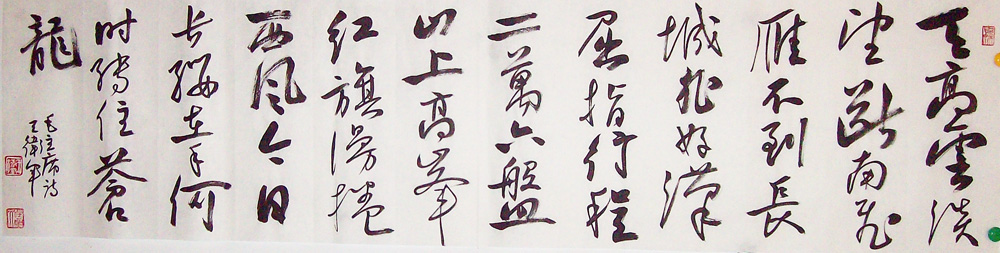 天高雲淡
望斷南飛
雁不到長
城非好漢
屈指行程
二萬六盤
山上高峯
紅旗漫捲
西風今日
长纓在手何
时縛住蒼
龍
毛主席詩